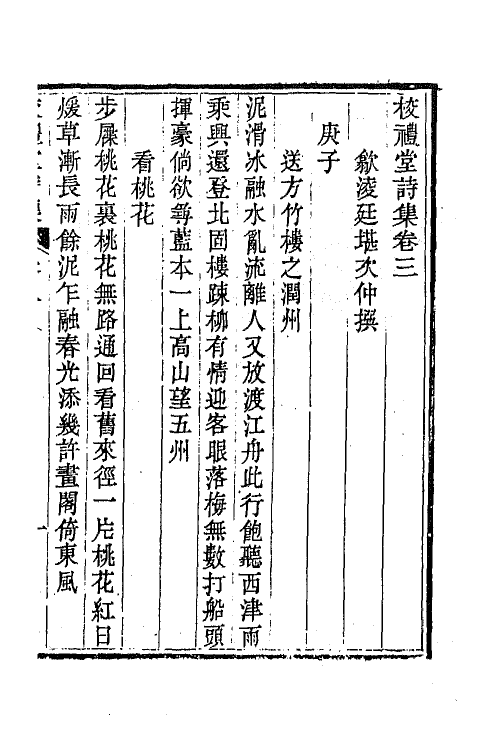 校禮堂詩集卷三
歙淩廷堪次仲撰
庚子
送方竹樓之潤州
泥滑冰融水亂流離人又放渡江舟此行飽聽西津雨
乘興還登北固樓疎柳有情迎客眼落梅無數打船頭
揮豪倘欲尋藍本一上高山望五州
看桃花
步屧桃花裏桃花無路通回看舊來徑一片桃花紅日
煖草漸長雨餘泥乍融春光添幾許畫閣倚東風